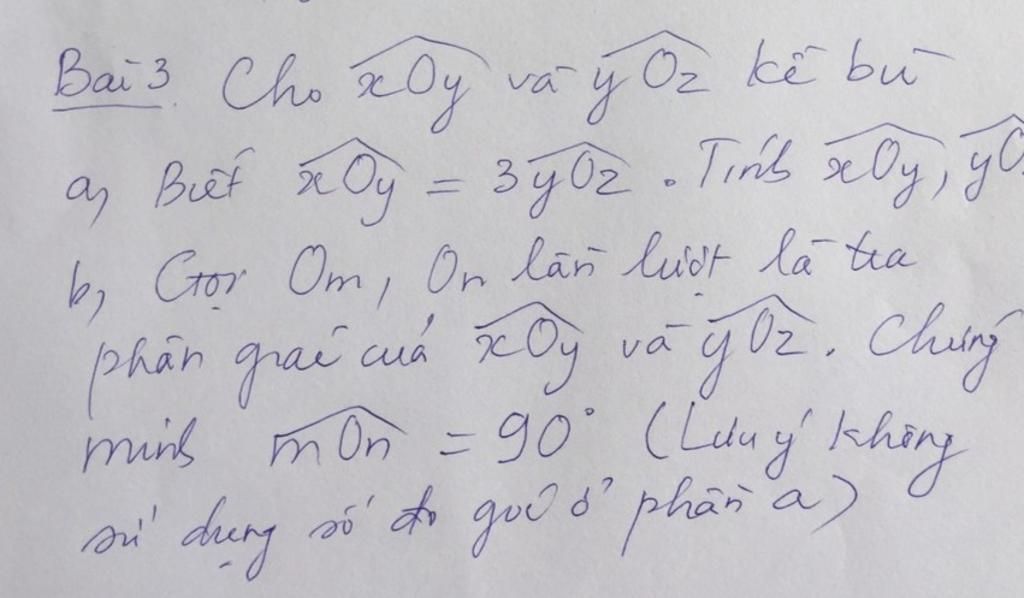 Bài 3. Cho xOy và yOz kề bù
a, Biết xOy = 3yOz. Tính xOy, yO
b, Gọi Om, On lần lượt là tia
phân giác của xOy và yOz. Chứng
minh mOn = 90° (Lưu ý không
sử dụng số đo góc ở phần a)